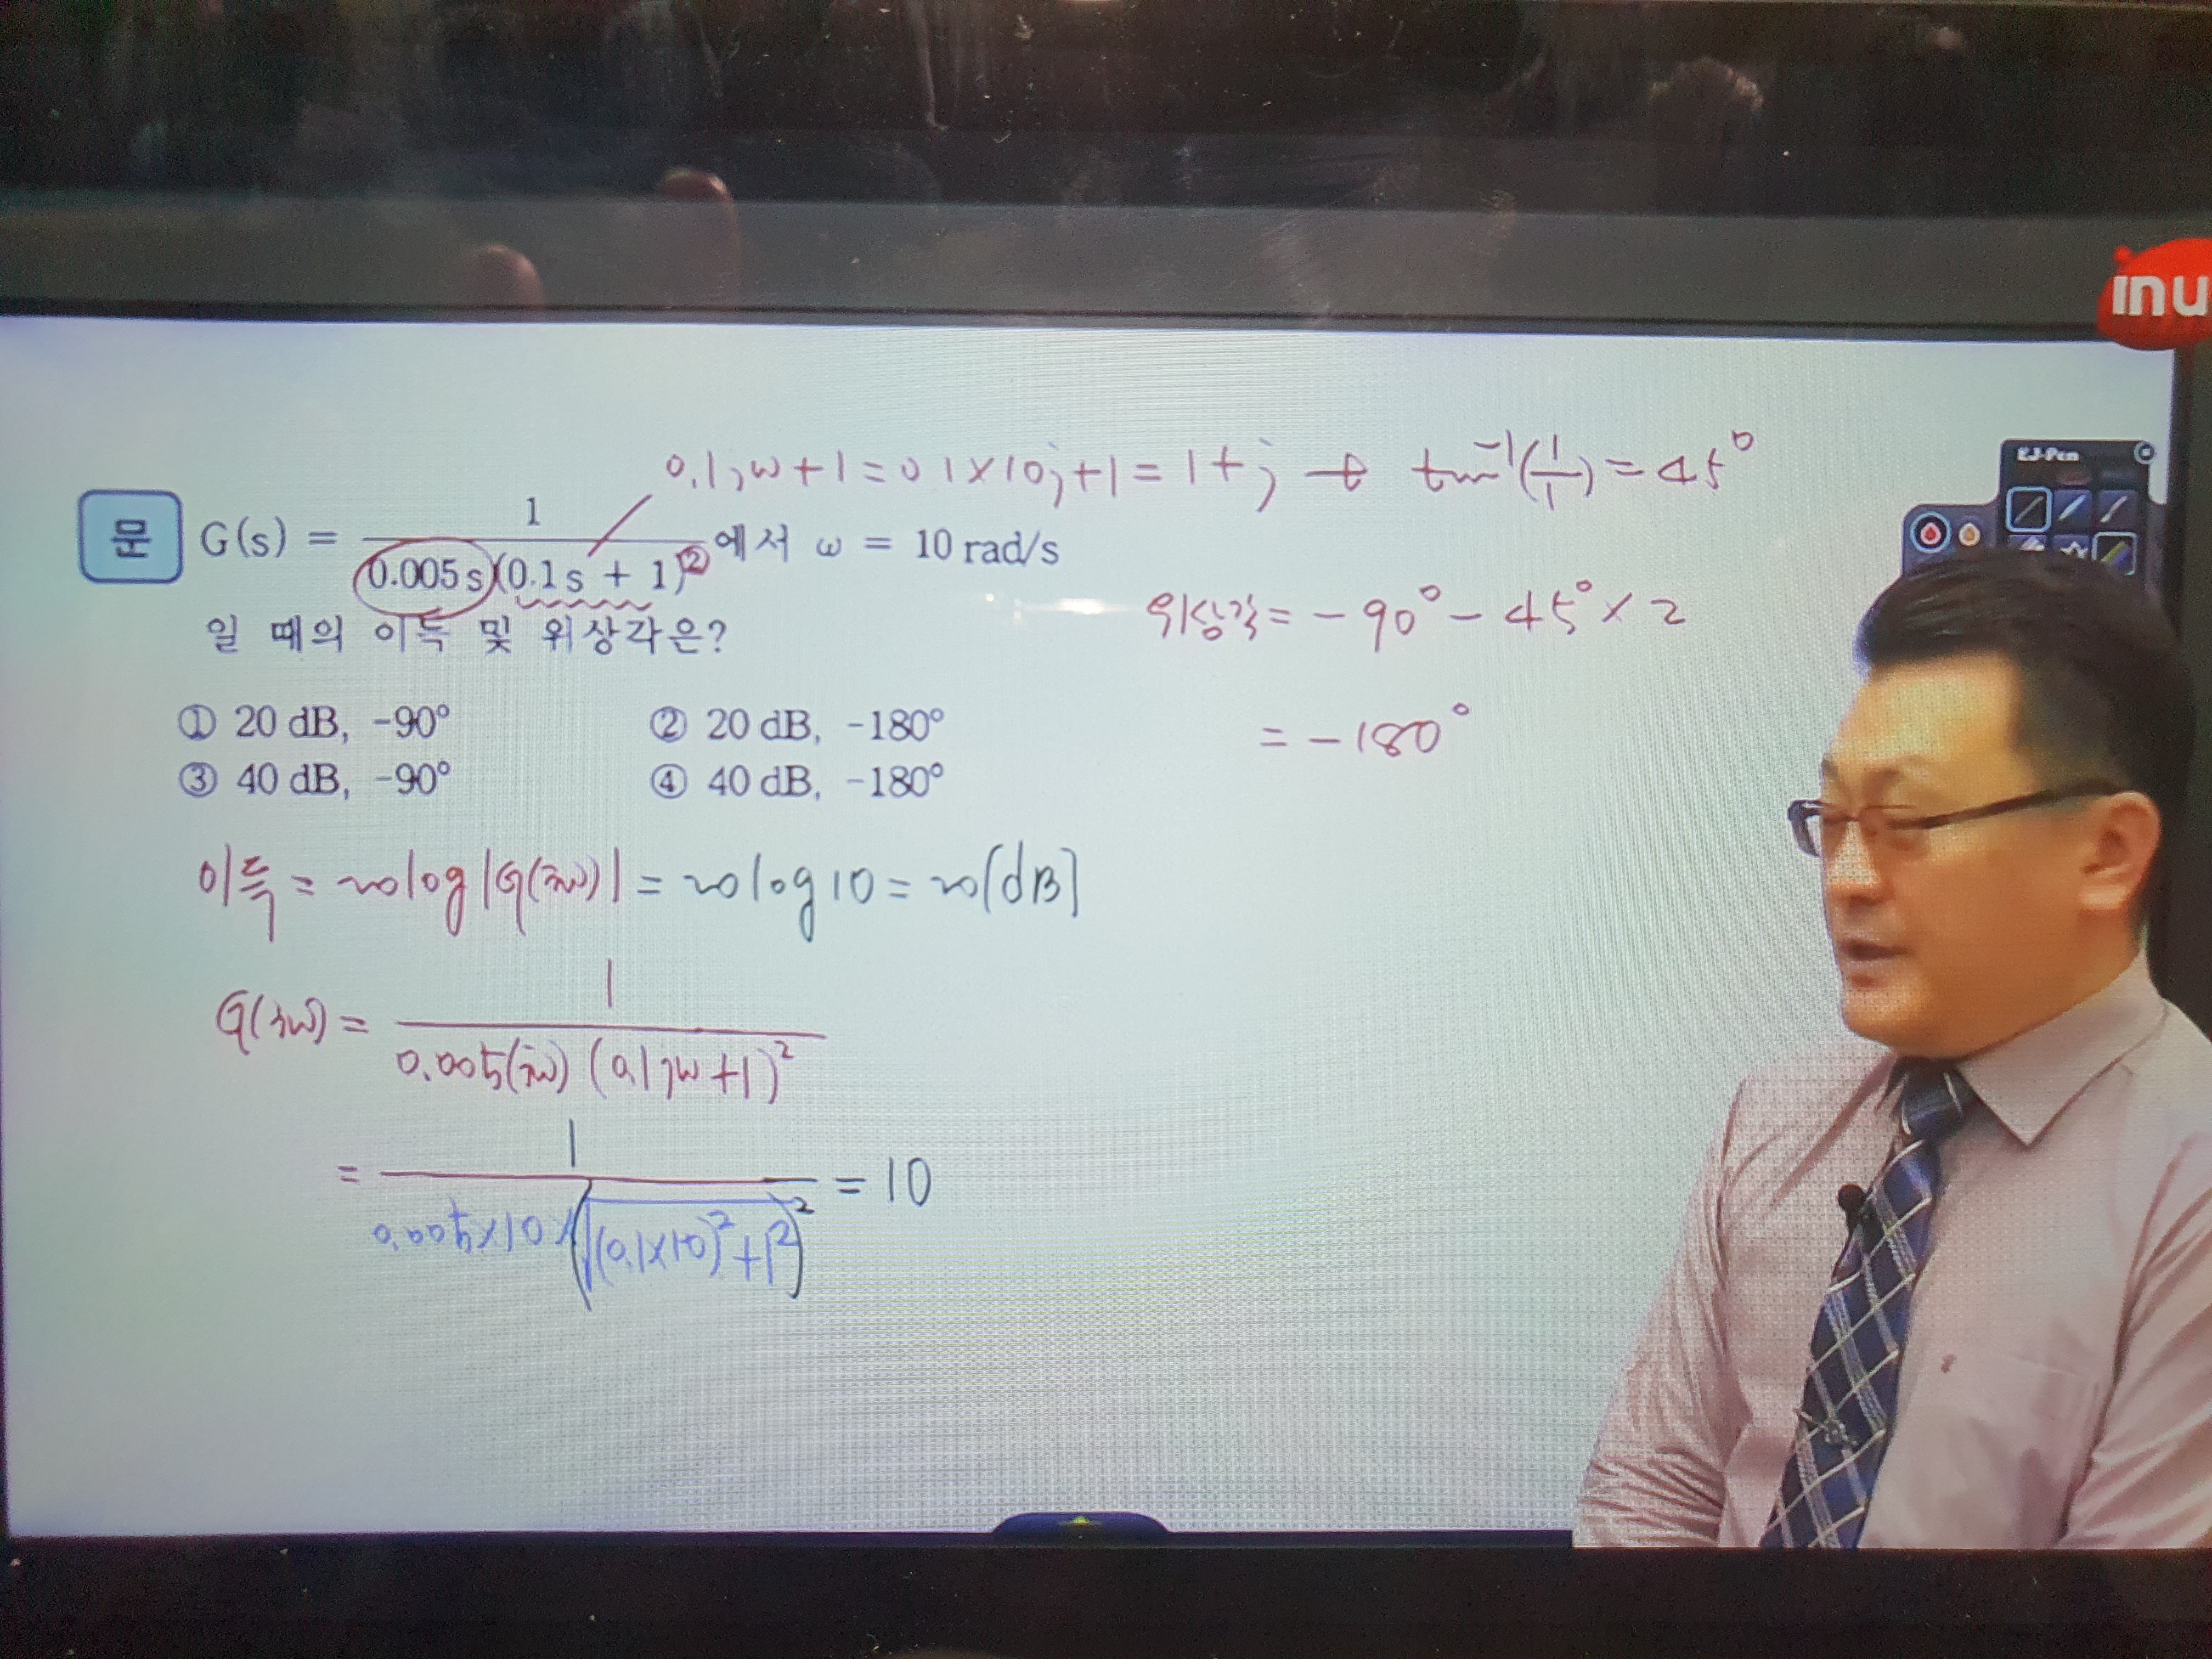 inu
EJ-Pen
0.1jω+1=0.1×10j+1=1+j → tan⁻¹(1/1)=45°
문 G(s) = 1/(0.005s(0.1s + 1)²) 에서 ω = 10 rad/s
일 때의 이득 및 위상각은?
위상각=-90°-45°×2
=-180°
① 20 dB, -90° ② 20 dB, -180°
③ 40 dB, -90° ④ 40 dB, -180°
이득=20log|G(jω)|=20log10=20[dB]
G(jω)=1/(0.005(jω)(0.1jω+1)²)
=1/(0.005×10×(√((0.1×10)²+1²))²)=10